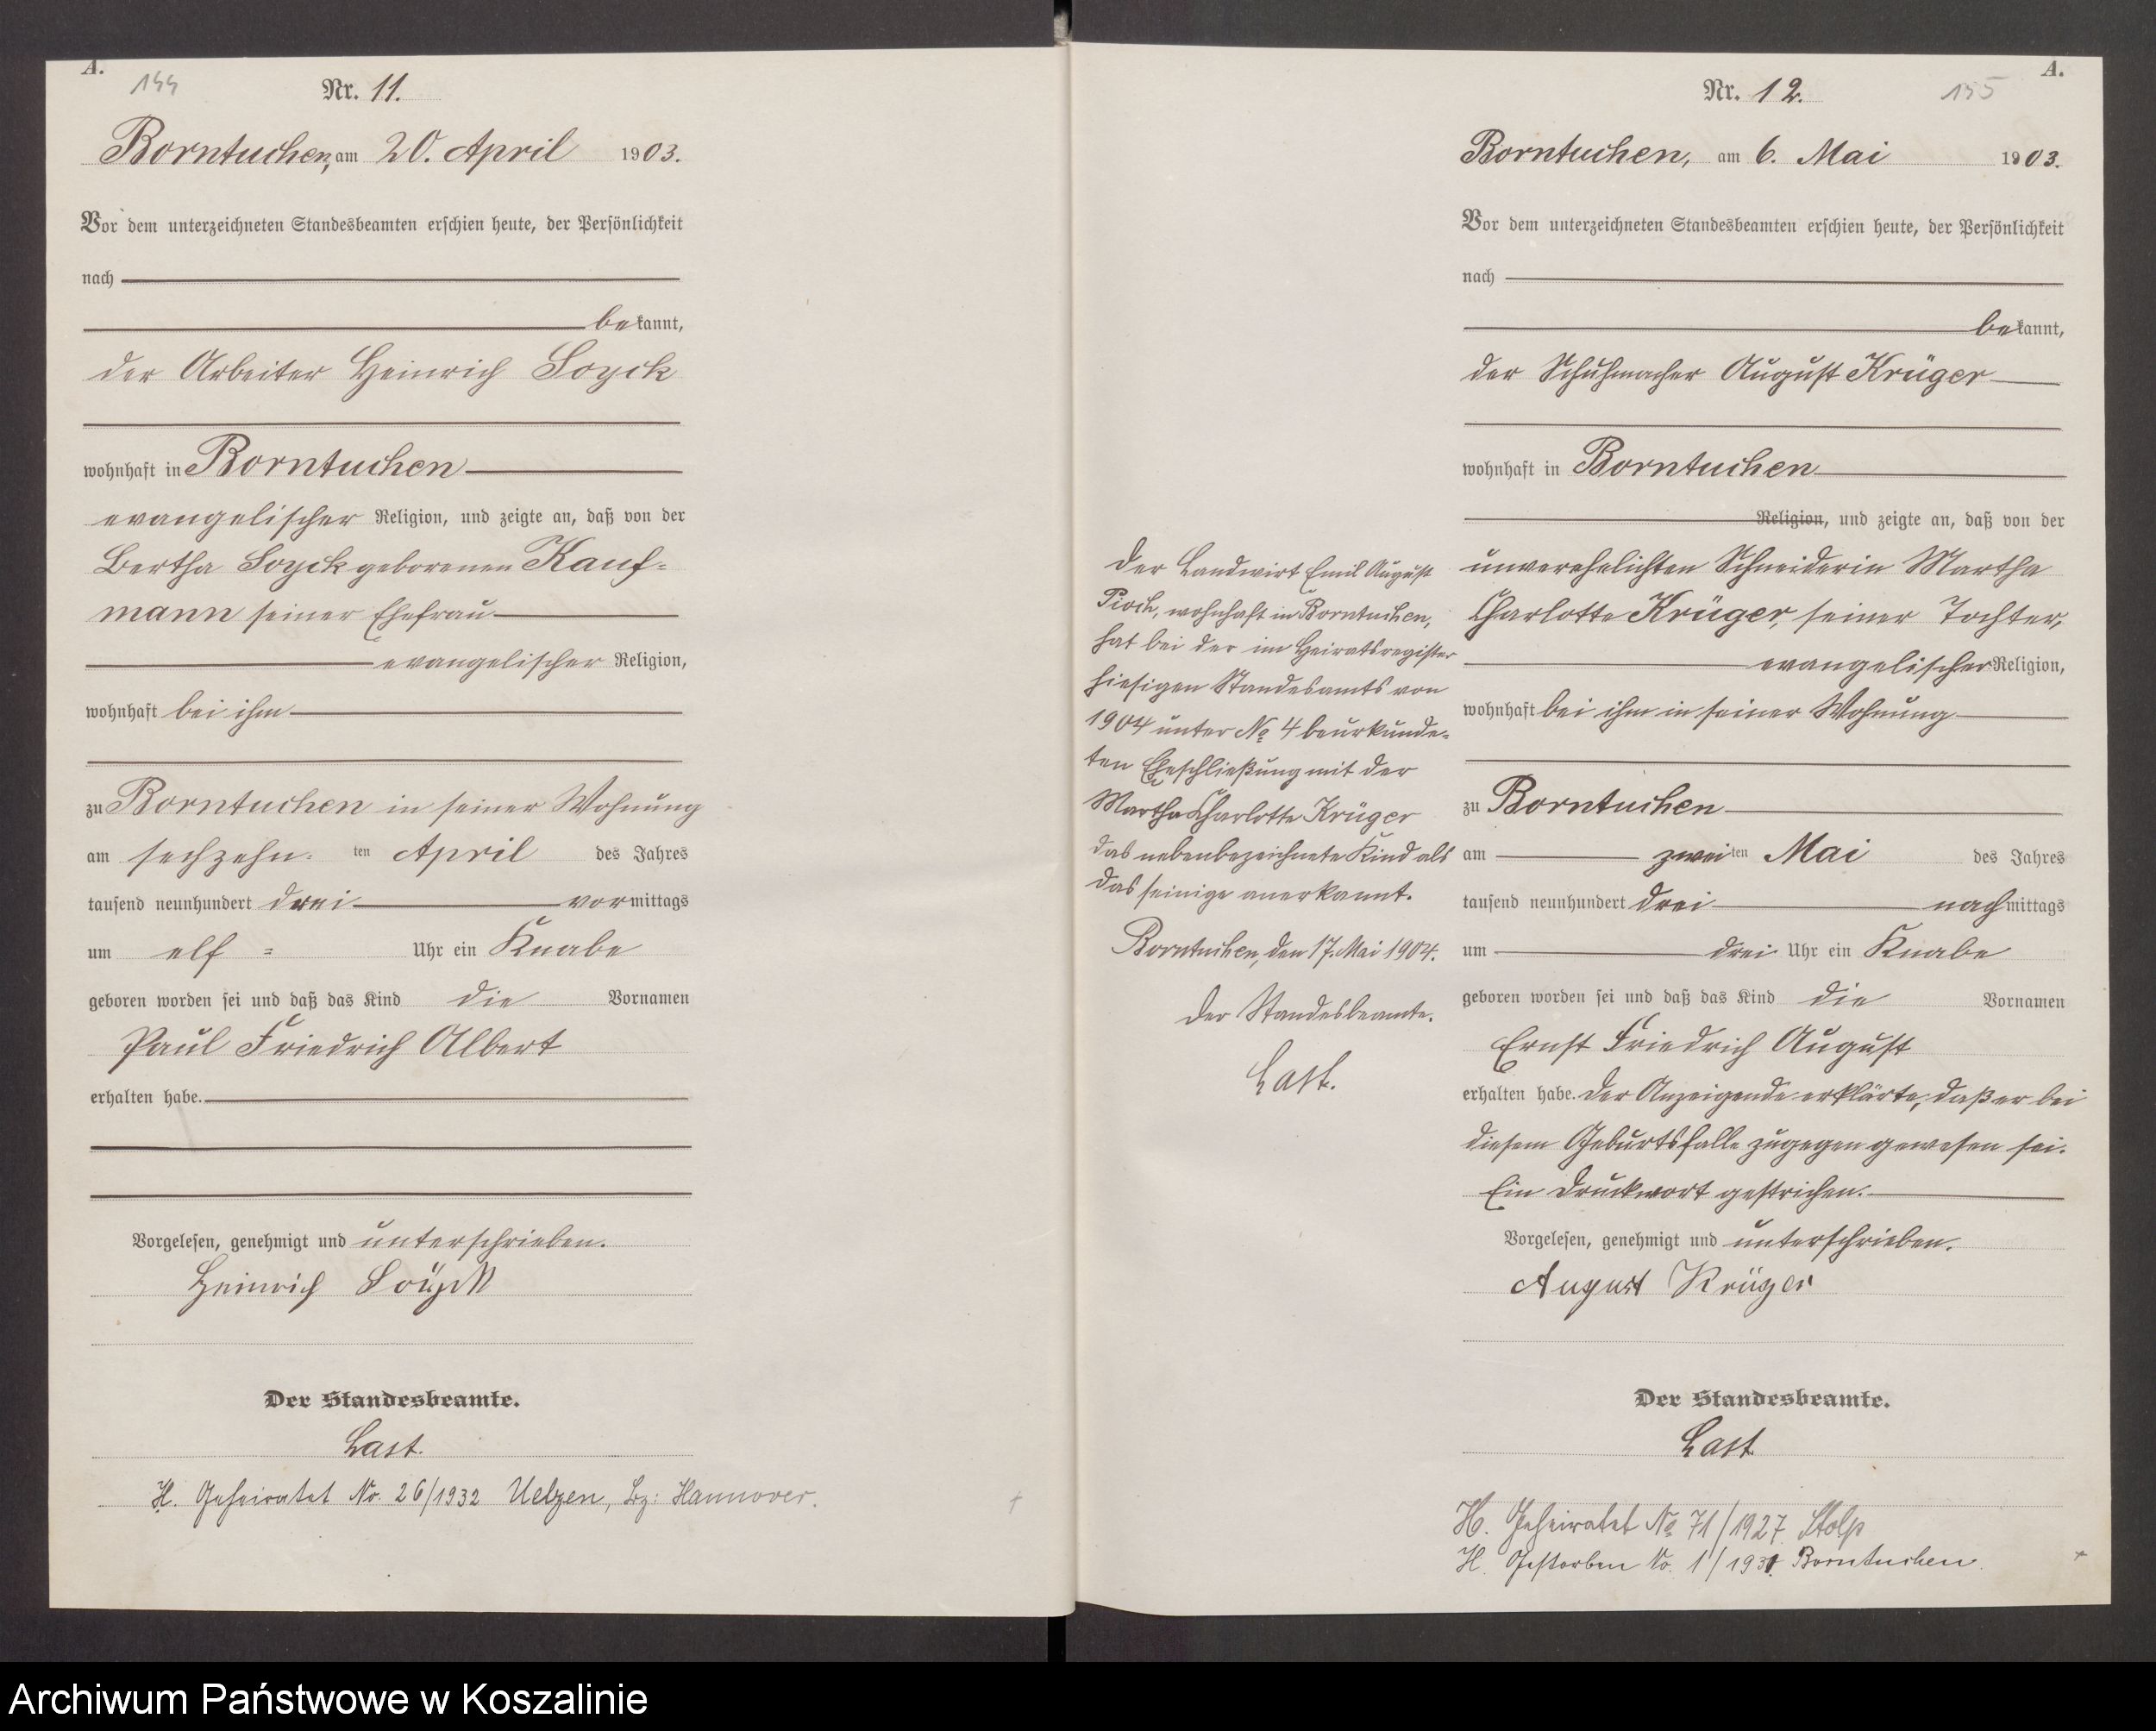 A.
144
Nr. 11.
Borntuchen, am 20. April 1903.
Vor dem unterzeichneten Standesbeamten erschien heute, der Persönlichkeit
nach
bekannt,
der Arbeiter Heinrich Soyck
wohnhaft in Borntuchen
evangelischer Religion, und zeigte an, daß von der
Bertha Soyck geborenen Kauf-
mann seiner Ehefrau
evangelischer Religion,
wohnhaft bei ihm
zu Borntuchen in seiner Wohnung
am sechzehn ten April des Jahres
tausend neunhundert drei vormittags
um elf Uhr ein Knabe
geboren worden sei und daß das Kind die Vornamen
Paul Friedrich Albert
erhalten habe.
Vorgelesen, genehmigt und unterschrieben.
Heinrich Soyck
Der Standesbeamte.
Last.
H. Geheiratet No. 26/1932 Uelzen, Bz: Hannover.
A.
155
Nr. 12.
Borntuchen, am 6. Mai 1903.
Vor dem unterzeichneten Standesbeamten erschien heute, der Persönlichkeit
nach
bekannt,
der Schuhmacher August Krüger
wohnhaft in Borntuchen
Religion, und zeigte an, daß von der
unverehelichten Schneiderin Martha
Charlotte Krüger, seiner Tochter,
evangelischer Religion,
wohnhaft bei ihm in seiner Wohnung
zu Borntuchen
am zweiten Mai des Jahres
tausend neunhundert drei nachmittags
um drei Uhr ein Knabe
geboren worden sei und daß das Kind die Vornamen
Ernst Friedrich August
erhalten habe. Der Anzeigende erklärte, daß er bei
diesem Geburtsfalle zugegen gewesen sei.
Ein Druckwort gestrichen.
Vorgelesen, genehmigt und unterschrieben.
August Krüger
Der Standesbeamte.
Last
H. Geheiratet No 71/1927 Stolp
H. Gestorben No. 1/1931 Borntuchen.
Der Landwirt Emil August
Pioch, wohnhaft in Borntuchen,
hat bei der im Heiratsregister
hiesigen Standesamts von
1904 unter No 4 beurkunde-
ten Eheschließung mit der
Martha Charlotte Krüger
das nebenbezeichnete Kind als
das seinige anerkannt.
Borntuchen, den 17. Mai 1904.
Der Standesbeamte.
Last.
Archiwum Państwowe w Koszalinie